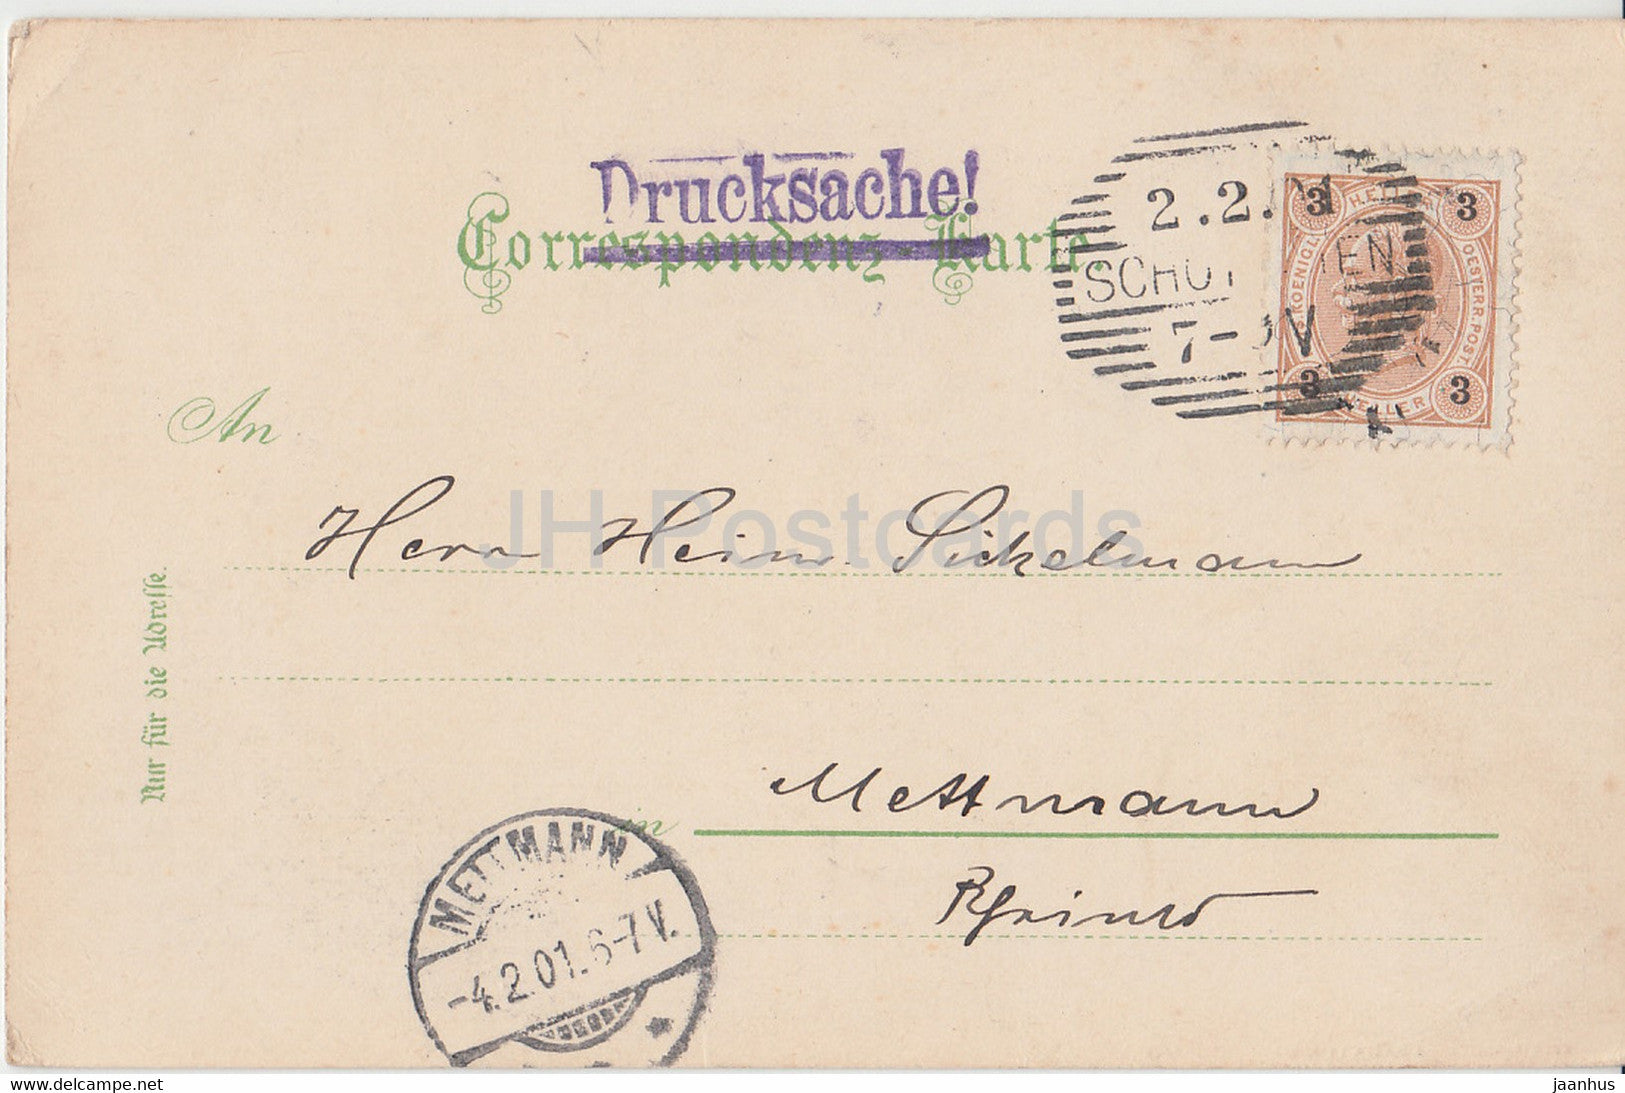 Drucksache!
Correspondenz-Karte.
2.2.01
7-
3 3
K. KOENIGL. OESTERR. POST.
3 HELLER 3
An
JH Postcards
Herrn Heinr. Sickelmann
Nur für die Adresse.
Mettmann
in
Rheinld
METTMANN
-4.2.01.6-7V.
delcampe.net
jaanhus